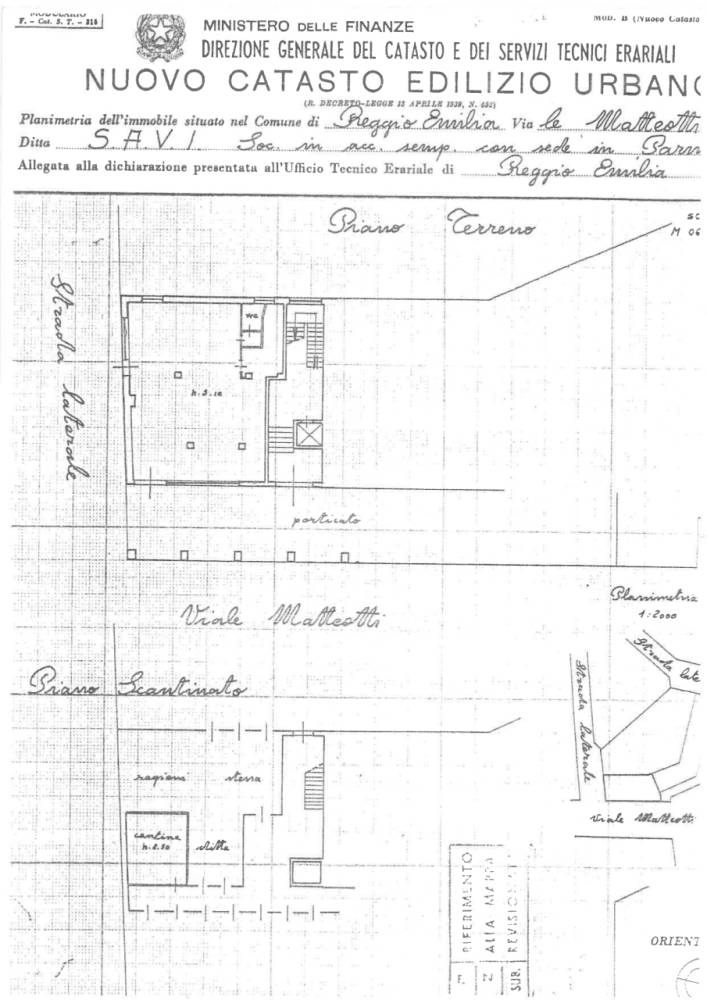 MODULARIO
F. - Cat. S. T. - 315
MOD. B (Nuovo Catasto
MINISTERO DELLE FINANZE
DIREZIONE GENERALE DEL CATASTO E DEI SERVIZI TECNICI ERARIALI
NUOVO CATASTO EDILIZIO URBANO
(R. DECRETO-LEGGE 13 APRILE 1939, N. 652)
Planimetria dell'immobile situato nel Comune di Reggio Emilia Via le Matteotti
Ditta S.A.V.I. Soc. in acc. semp. con sede in Parm
Allegata alla dichiarazione presentata all'Ufficio Tecnico Erariale di Reggio Emilia
Piano Terreno
SC
M 06
Strada laterale
wc
porticato
Viale Matteotti
Planimetria
1:2000
Piano Scantinato
Strada late
Strada laterale
ragione stessa
cantina
ditta
Viale Matteotti
RIFERIMENTO
ALLA MAPPA
F.
N.
SUB.
ORIENT